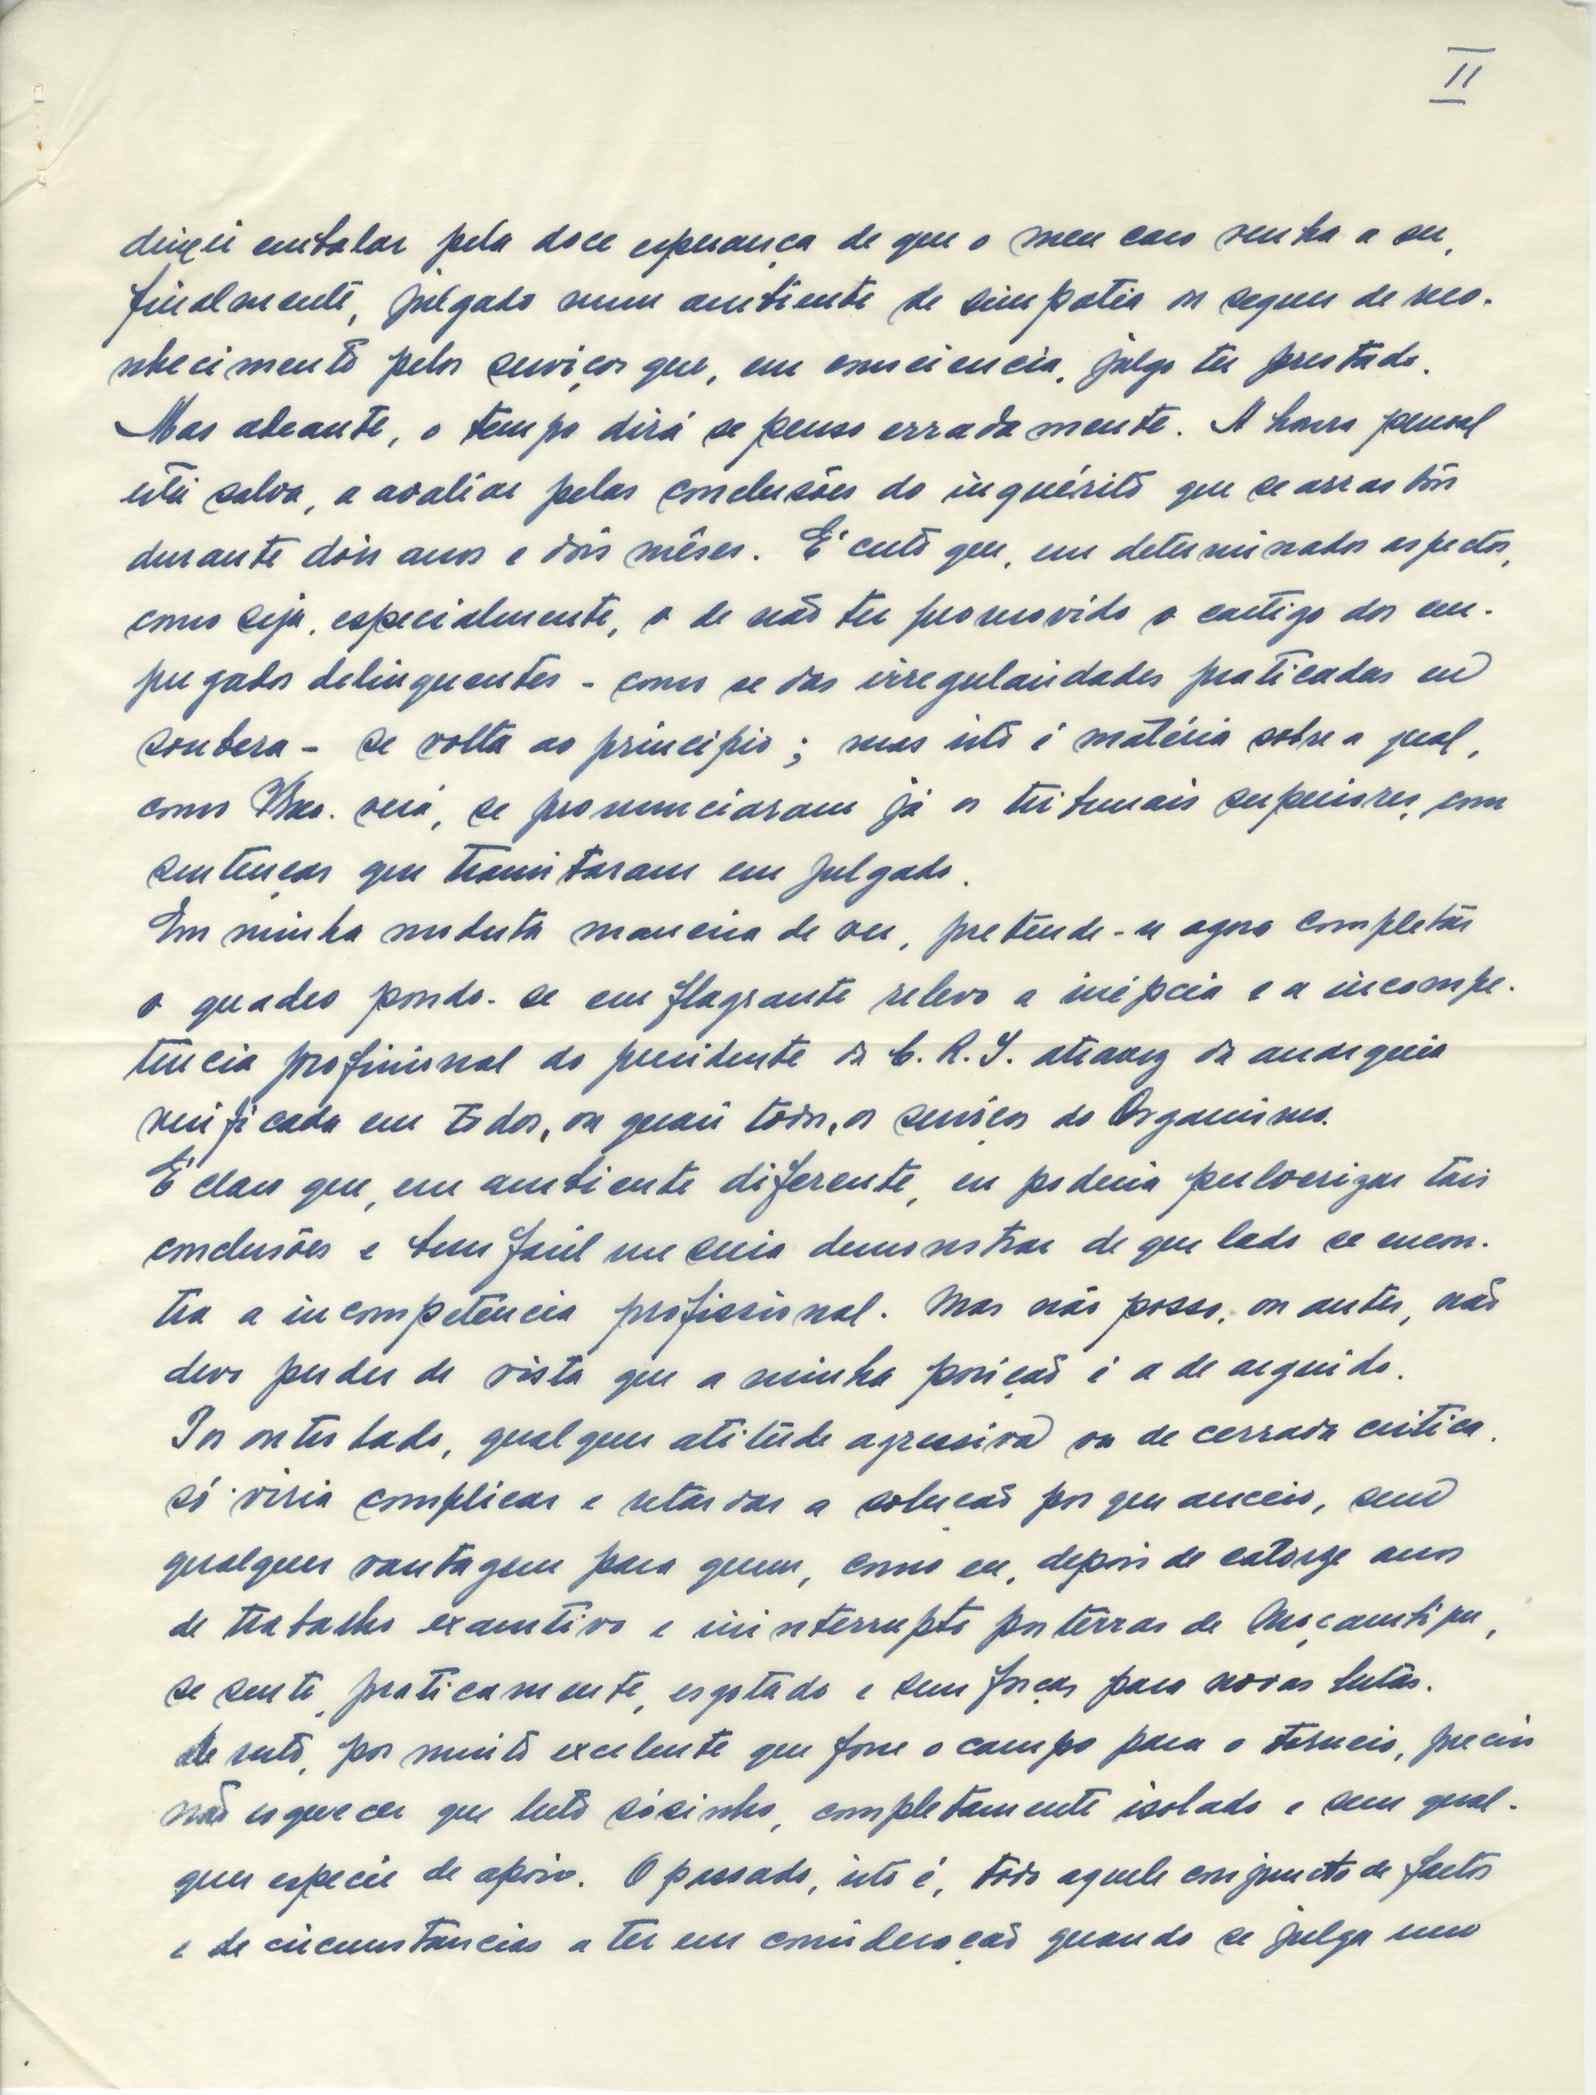 II
deixei embalar pela doce esperança de que o meu caso venha a ser,
finalmente, julgado num ambiente de simpatia ou sequer de reco-
nhecimento pelos serviços que, em consciencia, julgo ter prestado.
Mas adeante, o tempo dirá se penso erradamente. A honra pessoal
está salva, a avaliar pelas conclusões do inquérito que se arrastou
durante dois anos e dois mêses. É certo que, em determinados aspectos,
como seja, especialmente, o de não ter promovido o castigo dos em-
pregados delinquentes - como se das irregularidades praticadas eu
soubera - se volta ao princípio; mas isto é matéria sobre a qual,
como Vexa. verá, se pronunciaram já os tribunais superiores, com
sentenças que transitaram em julgado.
Em minha modesta maneira de ver, pretende-se agora completar
o quadro pondo-se em flagrante relevo a inépcia e a incompe-
tência profissional do presidente da C. R. S. atravez da anarquia
verificada em todos, ou quasi todos, os serviços do Organismo.
É claro que, em ambiente diferente, eu poderia pulverizar tais
conclusões e bem facil me seria demonstrar de que lado se encon-
tra a incompetência profissional. Mas não posso, ou antes, não
devo perder de vista que a minha posição é a de arguido.
Por outro lado, qualquer atitúde agressiva ou de cerrada critica,
só viria complicar e retardar a solução por que anceio, sem
qualquer vantagem para quem, como eu, depois de catorze anos
de trabalho exaustivo e ininterrupto por terras de Moçambique,
se sente, praticamente, esgotado e sem forças para novas lutas.
De resto, por muito excelente que fosse o campo para o torneio, preciso
não esquecer que luto sósinho, completamente isolado e sem qual-
quer espécie de apoio. O passado, isto é, todo aquele conjuncto de factos
e de circumstancias a ter em consideração quando se julga um